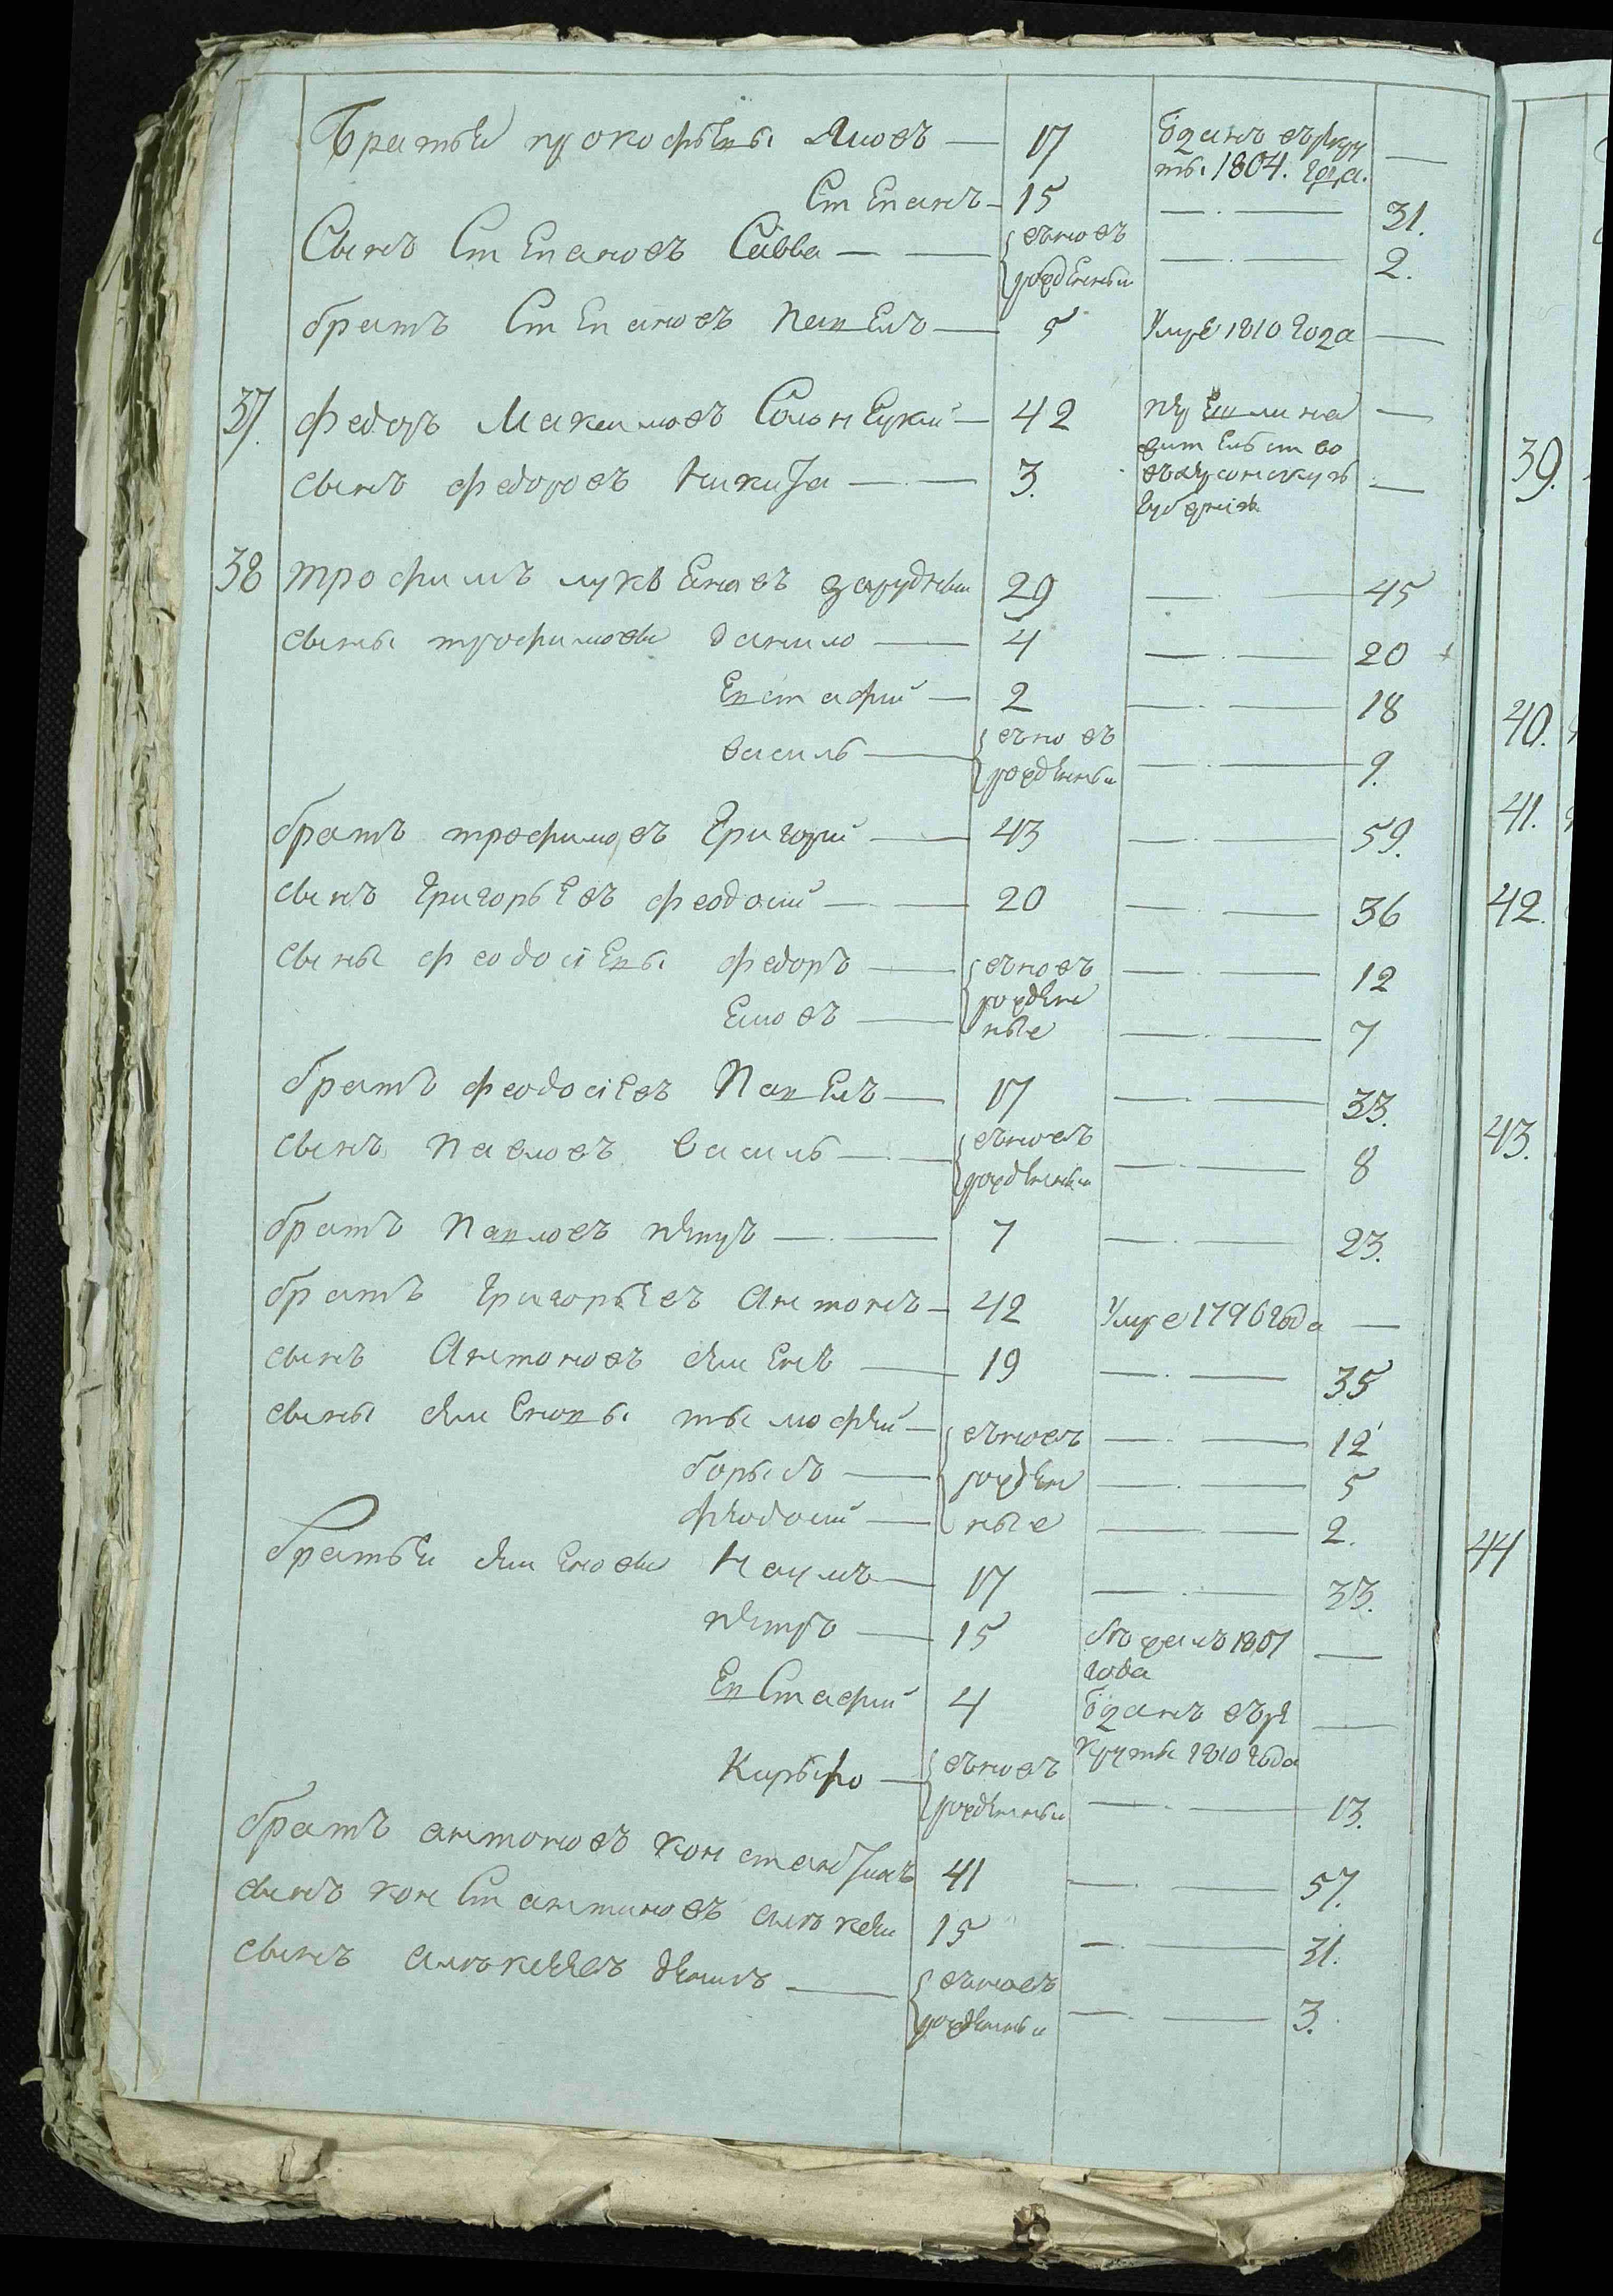 Братья прокофьевы Яковъ — 17 Взятъ врекру —
ты 1804. года.
Степанъ — 15 — . — 31.
Сынъ Степановъ Савва — — вновь — . — 2.
рожденный
братъ Степановъ Павелъ — 5 Умре 1810 года —
37. Федоръ Максимовъ — 42 —
сынъ федоровъ Никита — . — 3. жительство —
губернію
38 трофимъ лукьяновъ зарудный 29 — . — 45
сыны трофимовы данило — 4 — . — 20
Евстафий — 2 — . — 18
василь — вновь — . — 9.
рожденный
братъ трофимовъ Григорий — 43 — . — 59.
сынъ Григорьевъ феодосий — . — 20 — . — 36
сыны феодосіевы федоръ — вновь — . — 12
рожден
Яковъ — ные — . — 7
братъ феодосіевъ Павелъ — 17 — . — 33.
сынъ павловъ василь — . — вновь — . — 8
рожденный
братъ Павловъ петръ — . — 7 — . — 23.
братъ Григорьевъ Антонъ — 42 Умре 1796 года —
сынъ Антоновъ Семенъ — 19 — . — 35
сыны Семеновы тимофей — вновь — . — 12
борисъ — рожден — . — 5
феодосий — ные — . — 2.
братья Семеновы Наумъ — 17 — . — 33.
петръ — 15 1807 —
года
Евстафий 4 Взятъ вре —
круты 1810 года
Кирыло — вновь
рожденный — . — 13.
братъ антоновъ константинъ 41 — . — 57.
сынъ константиновъ алексей 15 — . — 31.
сынъ алексеевъ — вновь — . — 3.
рожденный
39.
40.
41.
42.
43.
44